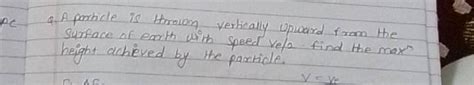 Q. A particle is thrown vertically upward from the
surface of earth with speed ve/2 find the maxm
height achieved by the particle.